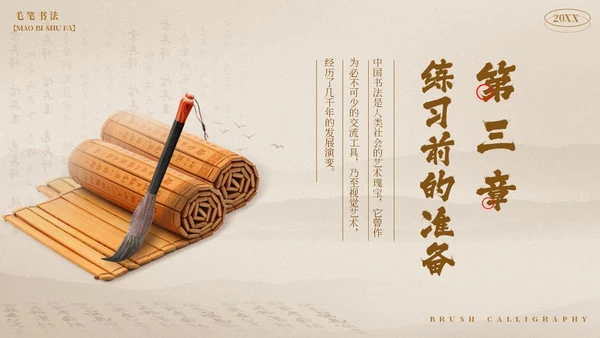 毛笔书法
【MAO BI SHU FA】
20XX
第三章
练习前的准备
中国书法是人类社会的艺术瑰宝，它曾作
为必不可少的交流工具，乃至视觉艺术，
经历了几千年的发展演变。
BRUSH CALLIGRAPHY